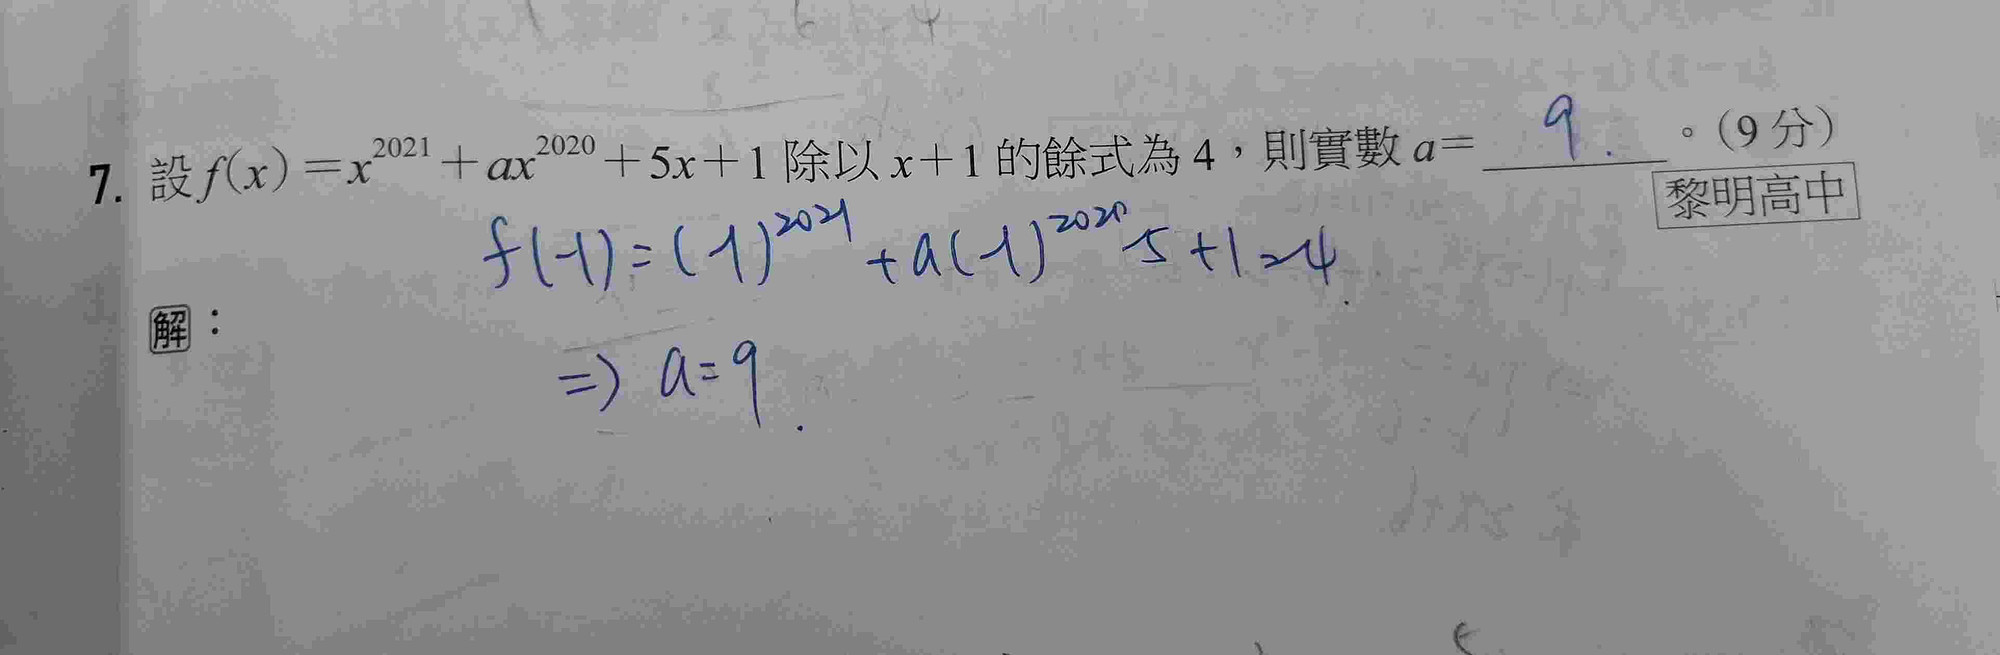 7. 設 f(x)=x^2021+ax^2020+5x+1 除以 x+1 的餘式為 4，則實數 a= 9. 。(9 分)
黎明高中
f(-1)=(-1)^2021+a(-1)^2020-5+1=4.
解：
=> a=9.